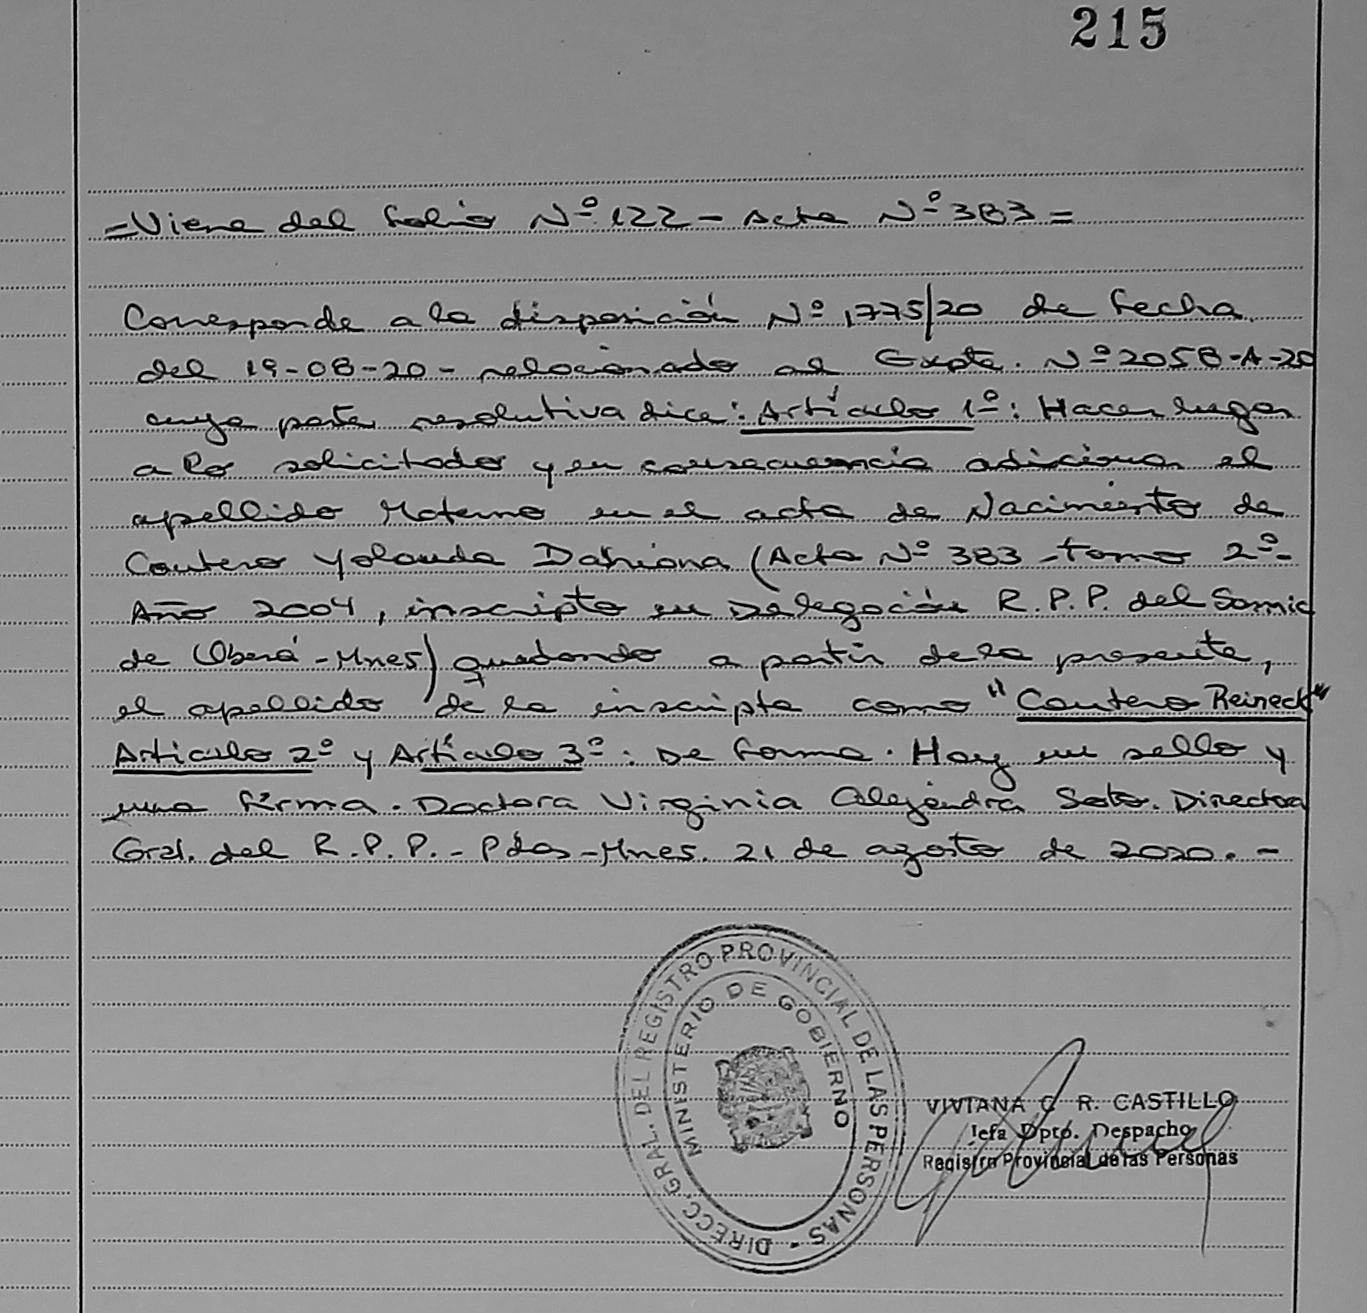 215
=Viene del folio Nº 122 - Acta Nº 383 =
Corresponde a la disposición Nº 1775/20 de fecha
del 19-08-20 - relacionado al Expte. Nº 2058-A-20
cuya parte resolutiva dice: Artículo 1º: Hacer lugar
a lo solicitado y en consecuencia adicionar el
apellido Materno en el acta de Nacimiento de
Cantero Yolanda Dahiana (Acta Nº 383 - tomo 2º-
Año 2004, inscripto en Delegación R.P.P. del Samic
de Oberá - Mnes) quedando a partir de la presente,
el apellido de la inscripta como "Cantero Reineck"
Artículo 2º y Artículo 3º: De forma. Hay un sello y
una firma. Doctora Virginia Alejandra Soto. Directora
Gral. del R.P.P. - Pdas - Mnes. 21 de agosto de 2020. -
DIRECC. GRAL. DEL REGISTRO PROVINCIAL DE LAS PERSONAS -
MINISTERIO DE GOBIERNO
VIVIANA C R. CASTILLO
Jefa Dpto. Despacho
Registro Provincial de las Personas